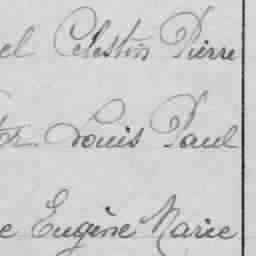 el Celestin Pierre
or Louis Paul
e Eugène Marie